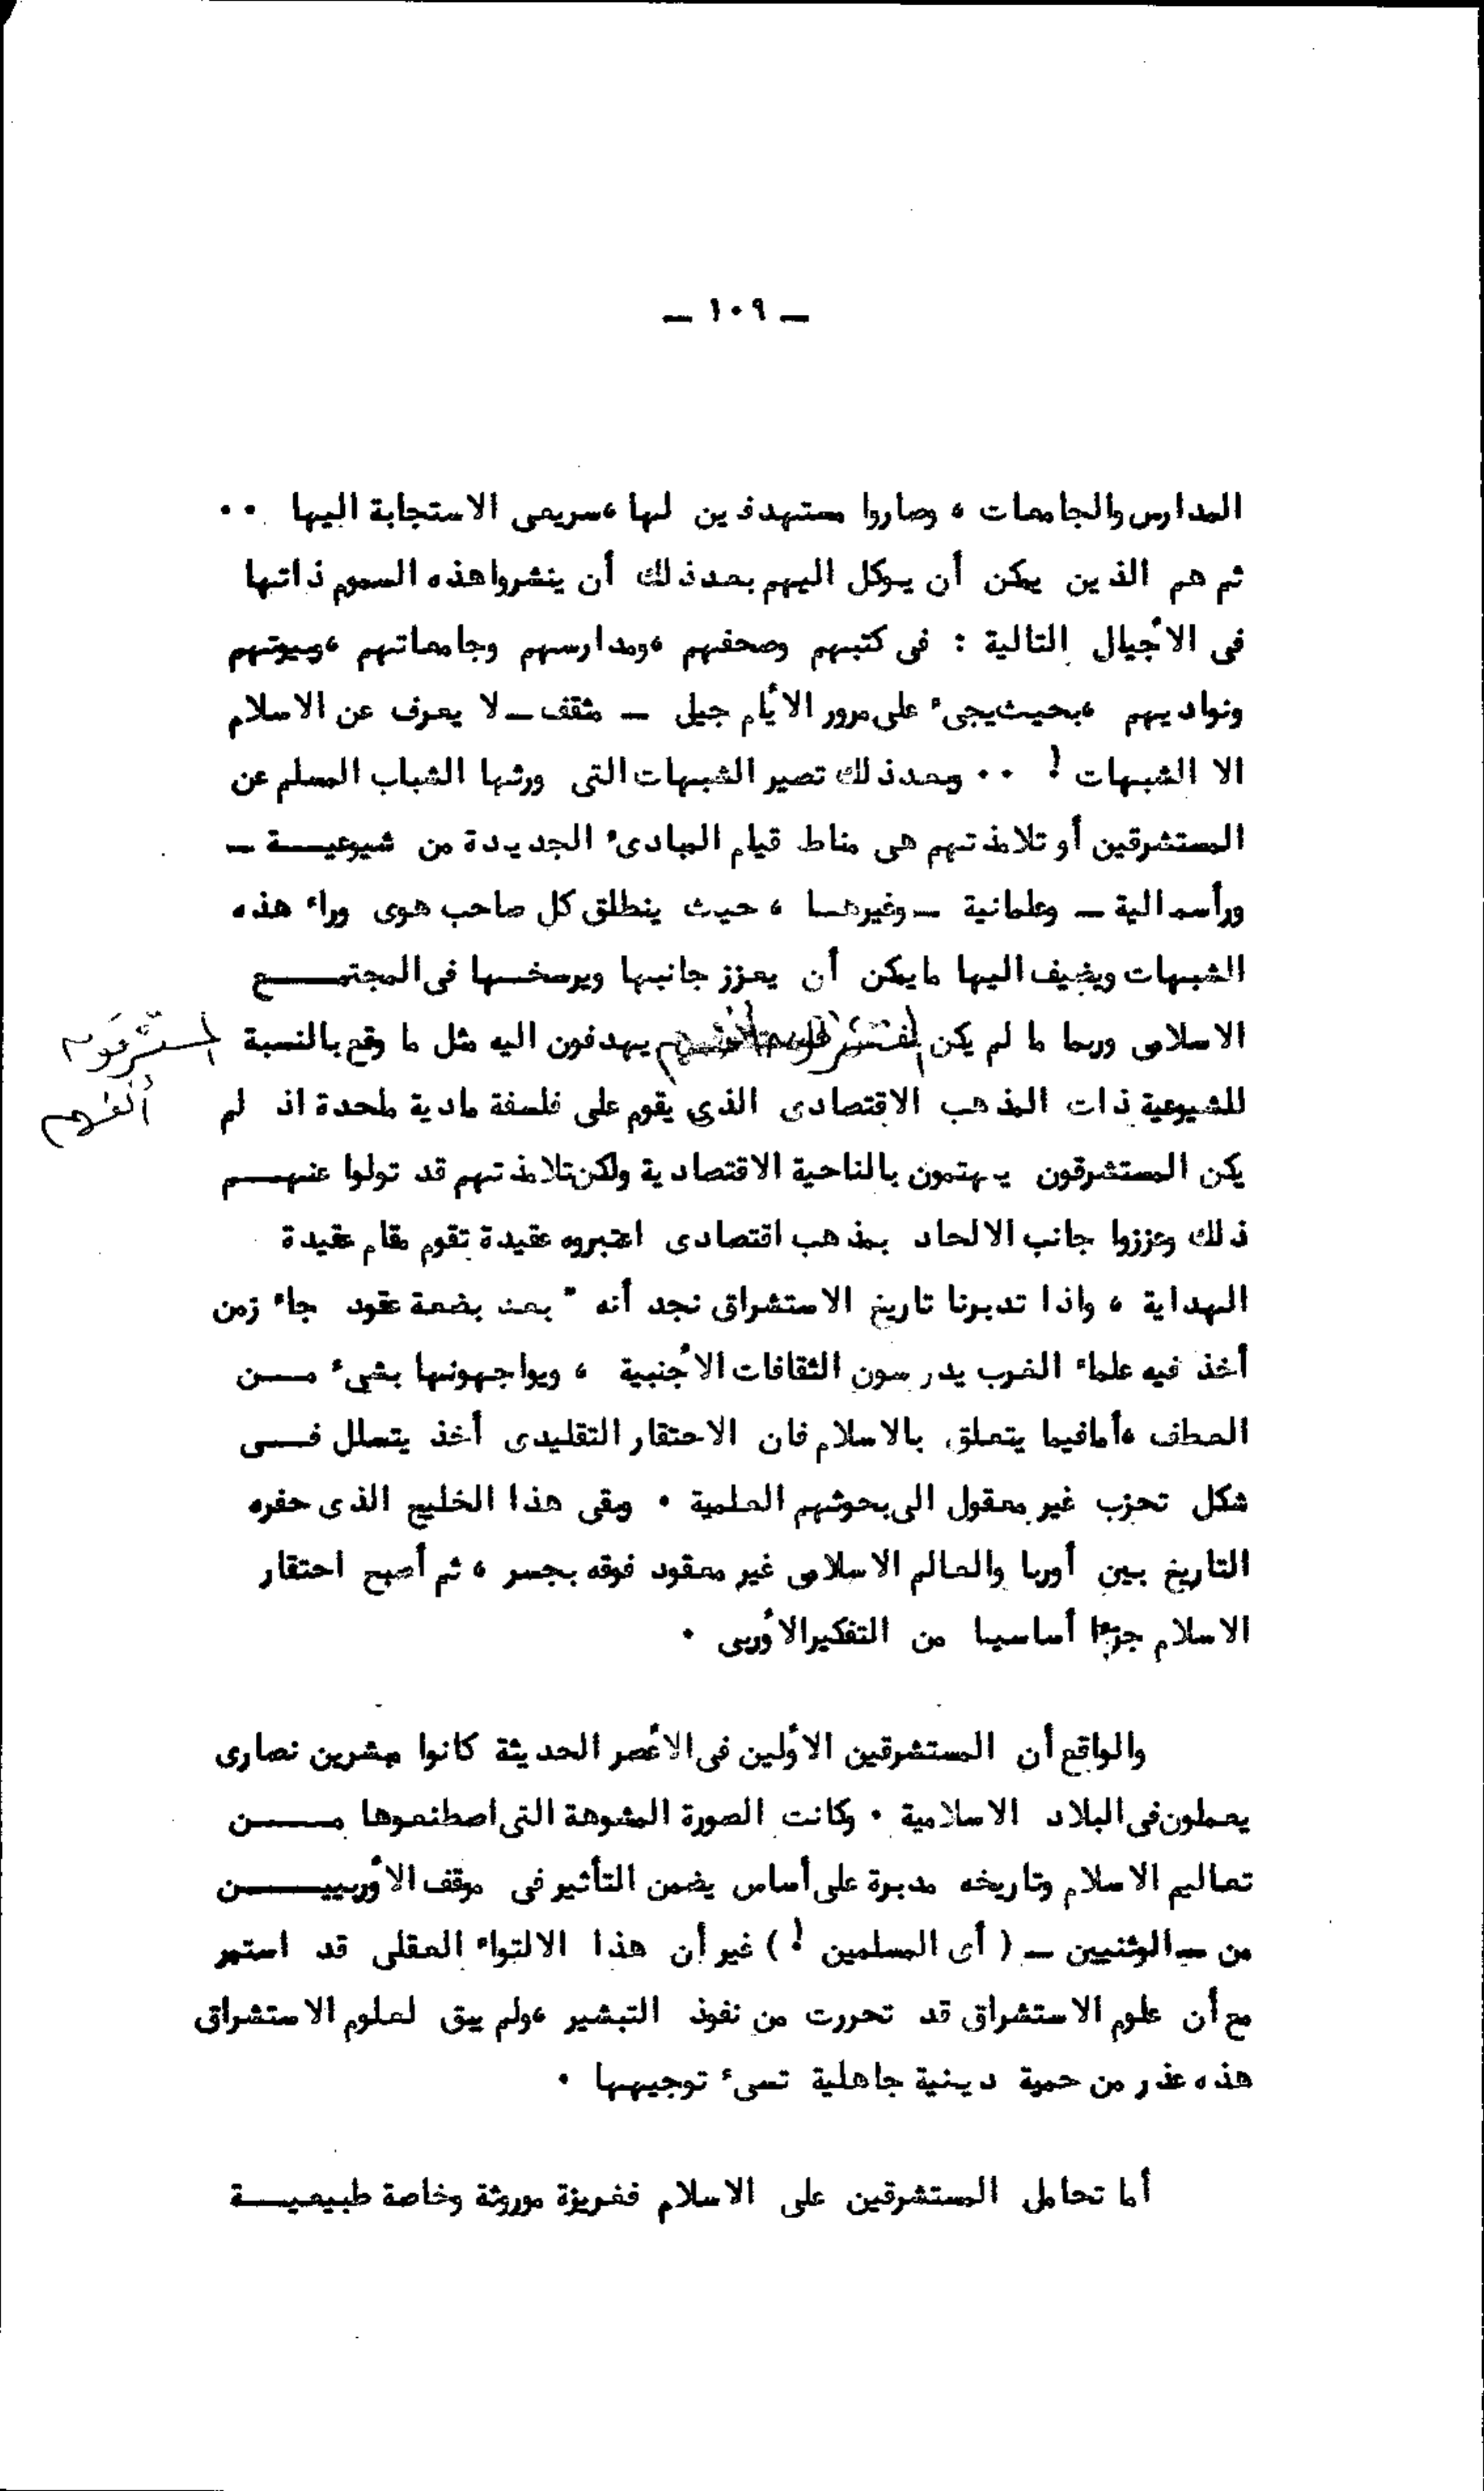 ـ ١٠٩ ـ
المدارس والجامعات ، وصاروا مستهدفين لها ،سريعى الاستجابة اليها ..
ثم هم الذين يمكن أن يوكل اليهم بعد ذلك أن ينشروا هذه السموم ذاتها
فى الأجيال التالية : فى كتبهم وصحفهم ،ومدارسهم وجامعاتهم ،وبيوتهم
ونواديهم ،بحيث يجىء على مرور الأيام جيل ـ مثقف ـ لا يعرف عن الاسلام
الا الشبهات ! .. وبعد ذلك تصير الشبهات التى ورثها الشباب المسلم عن
المستشرقين أو تلامذتهم هى مناط قيام المبادىء الجديدة من شيوعيــة ـ
ورأسمالية ـ وعلمانية ـ وغيرهـا ، حيث ينطلق كل صاحب هوى وراء هذه
الشبهات ويضيف اليها مايمكن أن يعزز جانبها ويرسخـها فى المجتمـــع
الاسلامى وربما ما لم يكن يهدفون اليه مثل ما وقع بالنسبة
المستشرقون
أنفسهم
للشيوعية ذات المذهب الاقتصادى الذى يقوم على فلسفة مادية ملحدة اذ لم
يكن المستشرقون يهتمون بالناحية الاقتصادية ولكن تلامذتهم قد تولوا عنهــم
ذلك وعززوا جانب الالحاد بمذهب اقتصادى اعتبروه عقيدة تقوم مقام عقيدة
الهداية ، واذا تدبرنا تاريخ الاستشراق نجد أنه " بعد بضعة عقود جاء زمن
أخذ فيه علماء الغرب يدرسون الثقافات الأجنبية ، ويواجهونها بشىء مــن
العطف ،أمافيما يتعلق بالاسلام فان الاحتقار التقليدى أخذ يتسلل فــى
شكل تحزب غير معقول الى بحوثهم العلمية . وبقى هذا الخليج الذى حفره
التاريخ بين أوربا والعالم الاسلامى غير معقود فوقه بجسر ، ثم أصبح احتقار
الاسلام جزءا أساسيا من التفكير الأوربى .
والواقع أن المستشرقين الأولين فى الأعصر الحديثة كانوا مبشرين نصارى
يعملون فى البلاد الاسلامية . وكانت الصورة المشوهة التى اصطنعوها مـــن
تعاليم الاسلام وتاريخه مدبرة على أساس يضمن التأثير فى موقف الأوربييــــن
من ـ الوثنيين ـ ( أى المسلمين ! ) غير أن هذا الالتواء العقلى قد استمر
مع أن علوم الاستشراق قد تحررت من نفوذ التبشير ،ولم يبق لعلوم الاستشراق
هذه عذر من حمية دينية جاهلية تسىء توجيهها .
أما تحامل المستشرقين على الاسلام فغريزة موروثة وخاصة طبيعيــة